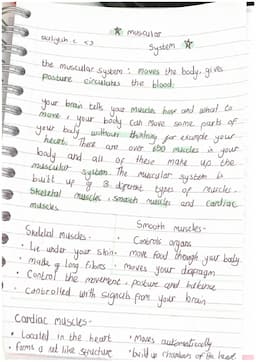 ★ muscular
System ★
the muscular system : moves the body, gives
posture circulates the blood.
your brain tells your muscles how and what to
move, your body can move some parts of
your body without thinking for example your
heart. There are over 600 muscles in your
body and all of these make up the
muscular system. The muscular system is
built up of 3 different types of muscles.
Skeletal muscles, smooth muscles and cardiac
muscles
Skeletal muscles -
• Lie under your skin.
• made of long fibres
• Control the movement, posture and balance
• controlled with signals from your brain
Smooth muscles -
• Controls organs
• move food through your body
• moves your diaphragm
Cardiac muscles -
• Located in the heart
• forms a net like structure
• Moves automatically
• build up chambers of the heart